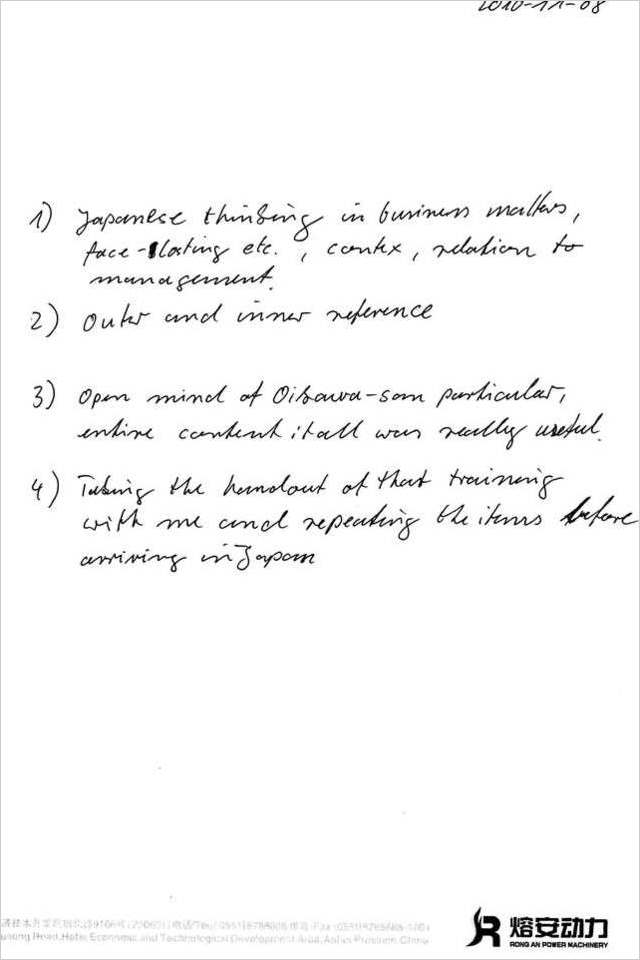 2010-11-08
1) Japanese thinking in business matters,
face-losting etc., contex, relation to
management.
2) Outer and inner reference
3) Open mind of Oikawa-san particular,
entire content it all was really useful.
4) Taking the handout of that training
with me and repeating the items before
arriving in Japan
Economic and Technological Development Area, Anhui Province, China
熔安动力
RONG AN POWER MACHINERY